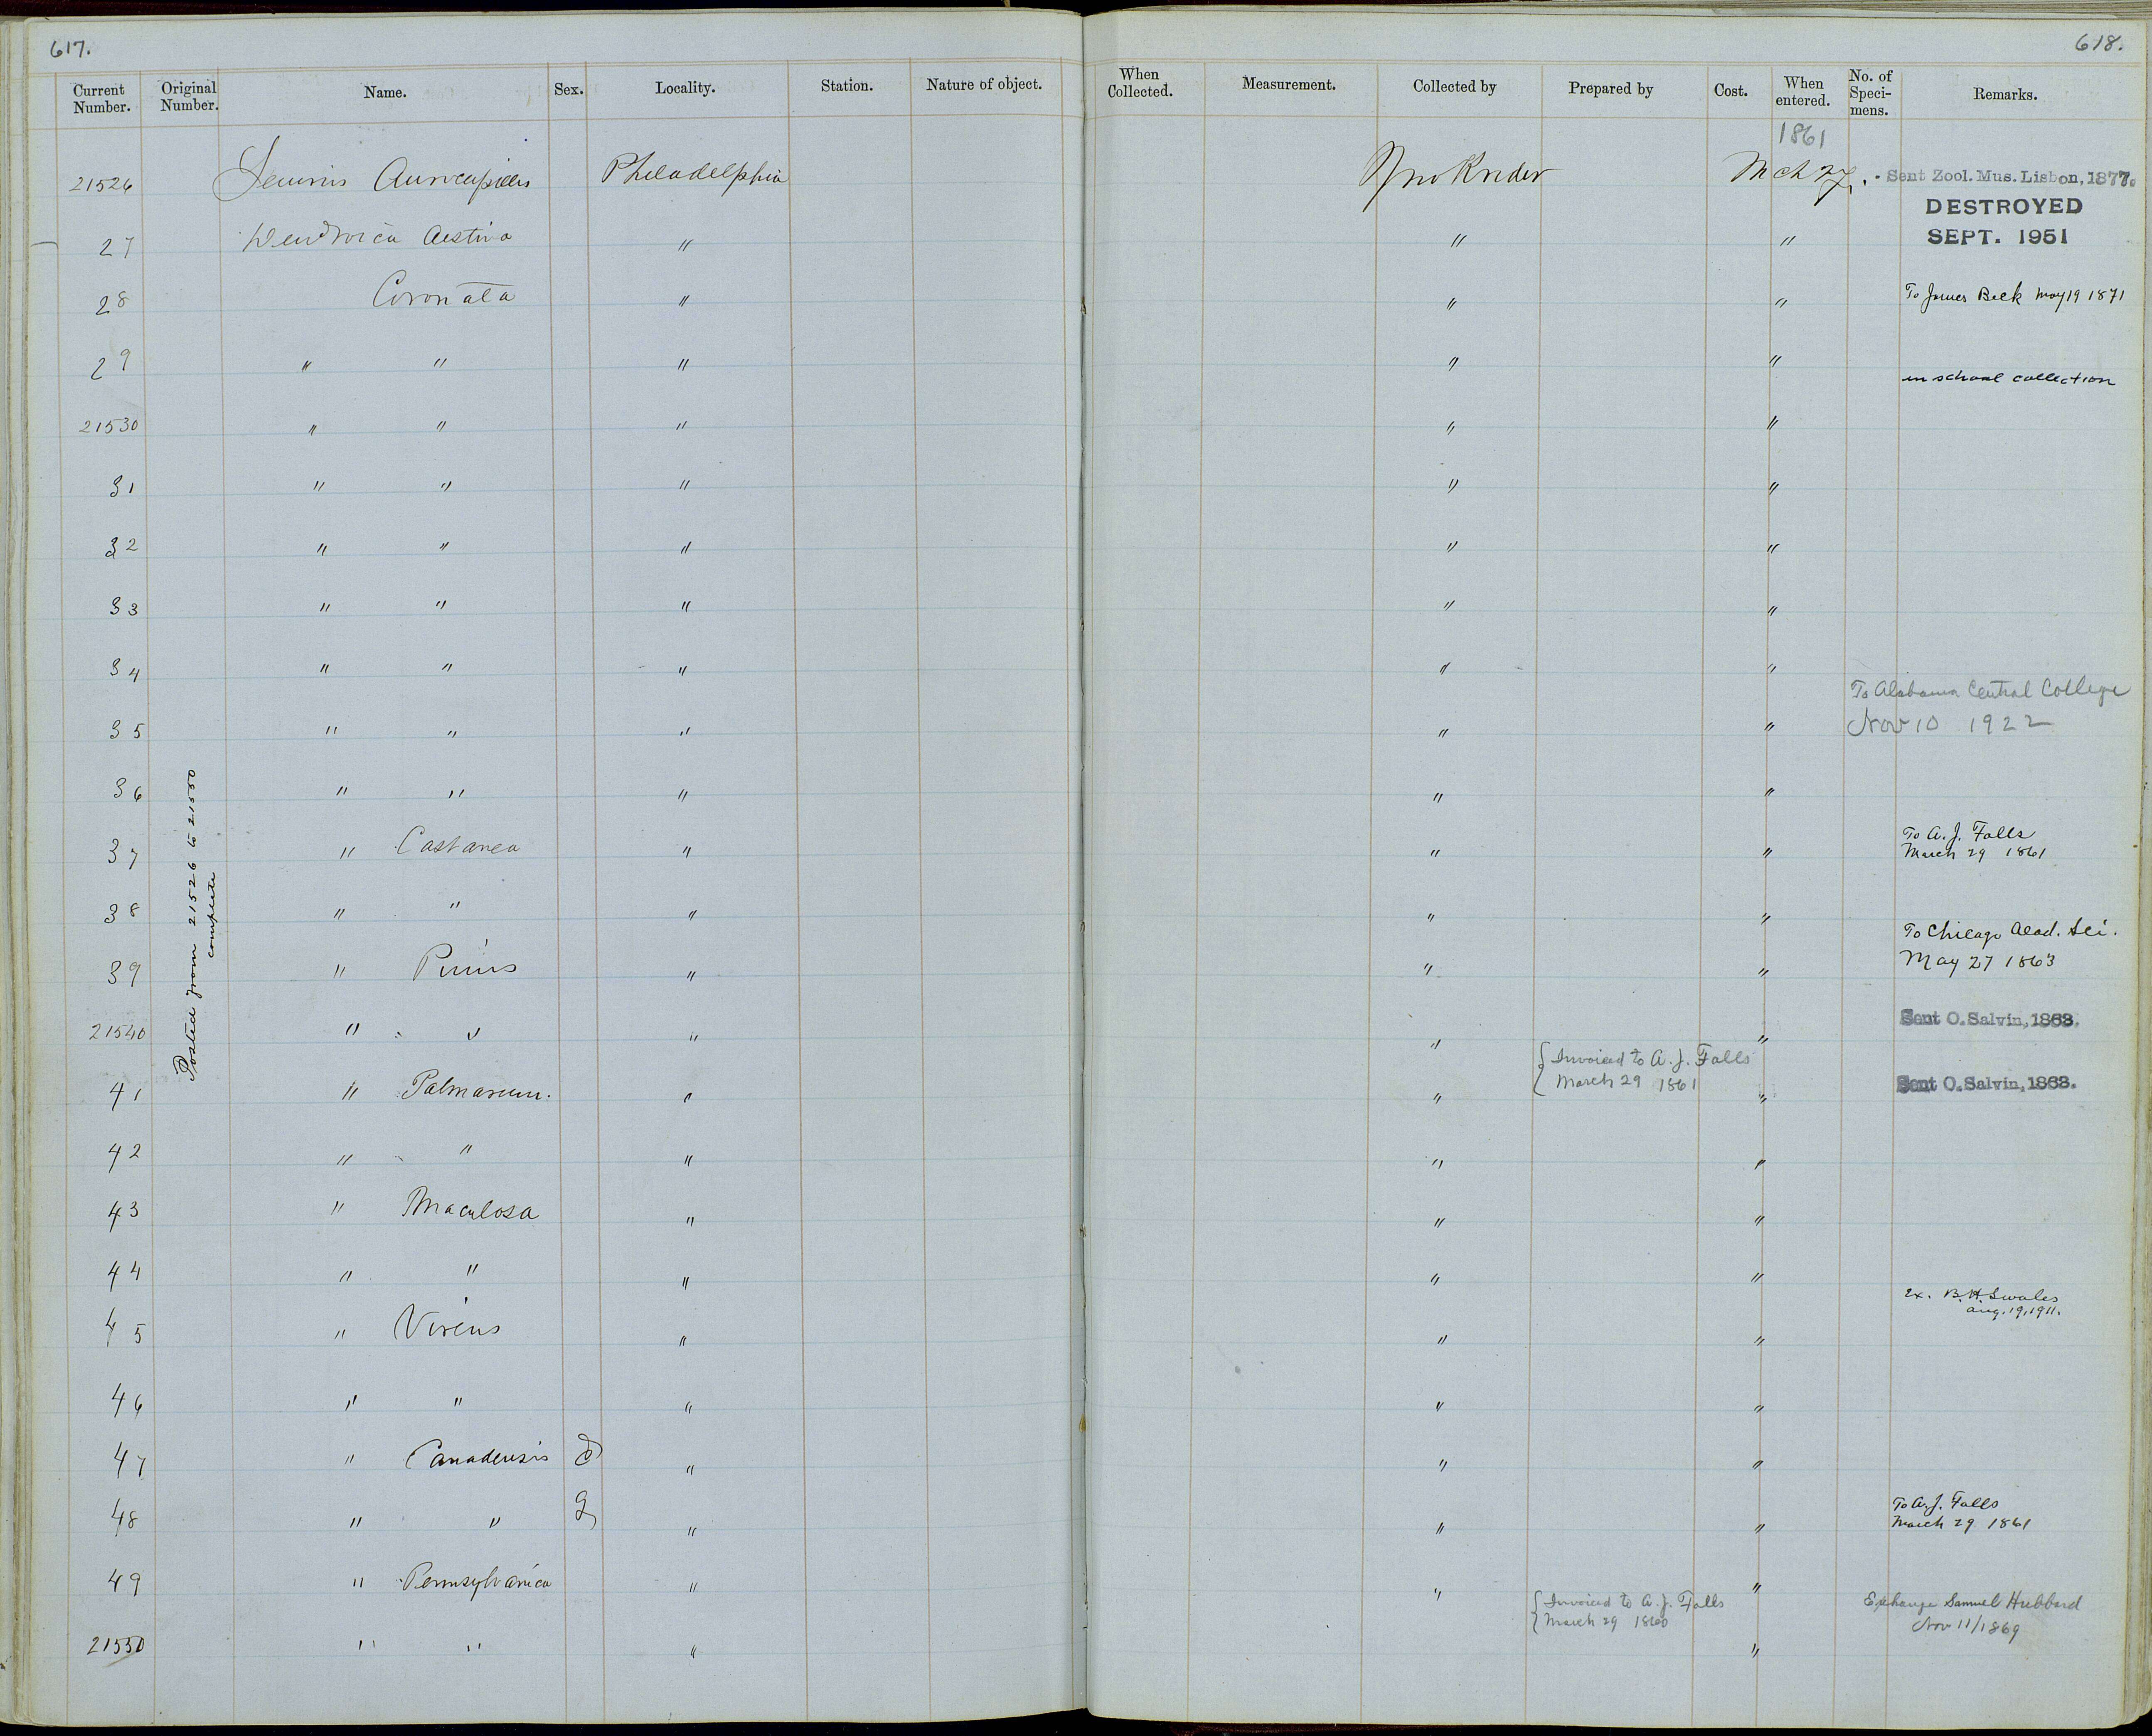 617.
618.
Current Number. Original Number. Name. Sex. Locality. Station. Nature of object. When Collected. Measurement. Collected by Prepared by Cost. When entered. No. of Speci-mens. Remarks.
1861
21526 Seiurus Aurocapillus Philadelphia Jno Krider Mch 27. Sent Zool. Mus. Lisbon, 1877.
DESTROYED
27 Dendroica Aestiva " " " SEPT. 1951
28 Coronata " " " To James Beck May 19 1871
29 " " " " "
in school collection
21530 " " " " "
31 " " " " "
32 " " " " "
33 " " " " "
34 " " " " "
To Alabama Central College
35 " " " " " Nov 10 1922
36 " " " " "
37 " Castanea " " " To A. J. Falls
March 29 1861
38 " " " " "
To Chicago Acad. Sci.
39 " Pinus " " " May 27 1863
21540 " " " " " Sent O. Salvin, 1868.
{Invoiced to A. J. Falls
March 29 1861
41 " Palmarum. " " " Sent O. Salvin, 1868.
42 " " " " "
43 " Maculosa " " "
44 " " " " "
Ex. B. H. Swales
Aug. 19, 1911.
45 " Virens " " "
46 " " " " "
47 " Canadensis ♂ " " "
48 " " ♀ " " " To A. J. Falls
March 29 1861
49 " Pennsylvanica " " "
{Invoiced to A. J. Falls Exchange Samuel Hubbard
March 29 1860 Nov 11/1869
21550 " " " "
Posted from 21526 to 21550
complete